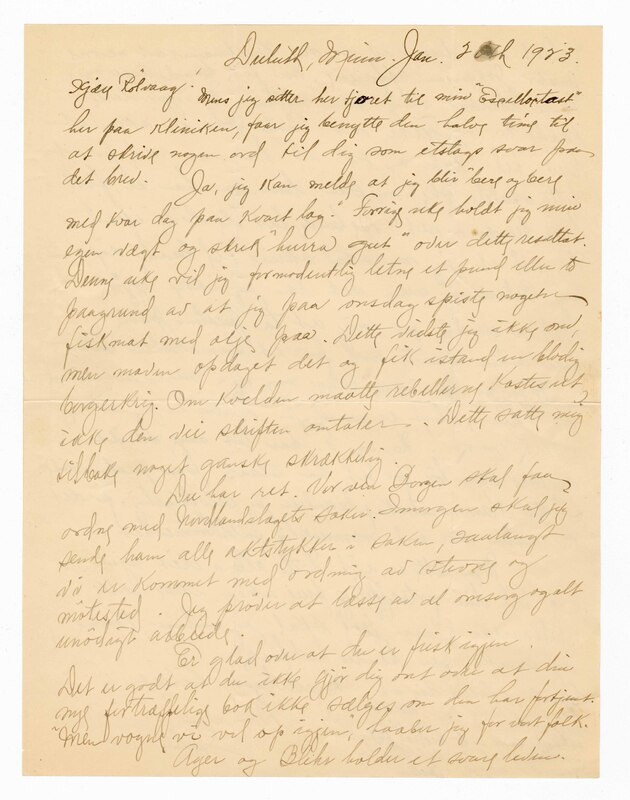 Duluth, Minn. Jan. 20th 1923.
Kjære Rölvaag!
Mens jeg sitter her fjoret til min
her paa Kliniken, faar jeg benytte den halve time til
at skrive nogen ord til dig som etslags svar paa
det brev. Ja, jeg kan melde at jeg blir "bere og bere
med kvar dag paa kvart lag." Forrige uke holdt jeg min
egen vægt og skrek "hurra gut" over dette resultat.
Denne uke vil jeg formodentlig letne et pund eller to
paagrund av at jeg paa onsdag spiste nogen
fiskmat med olje paa. Dette vidste jeg ikke om,
men maven opdaget det og fik istand en blodig
borgerkrig. Om kvelden maatte rebellerne kastes ut
ikke den vei skriften omtaler. Dette satte mig
tilbake noget ganske skrækkelig.
Du har ret. Vor ven Borgen skal faa
ordne med Nordlandslagets saker. Imorgen skal jeg
sende ham alle aktstykker i saken, saalangt
vi er kommet med ordning av stevne og
mötested. Jeg pröver at læsse av al omsorg og alt
unödigt arbeide.
Er glad over at du er frisk igjen.
Det er godt at du ikke gjör dig ont over at din
nye fortræffelige bok ikke sælges som den har fortjent.
"Men vogne vi vil op igjen, haaber jeg for vort folk.
Ager og Blehr holder et svare leven.